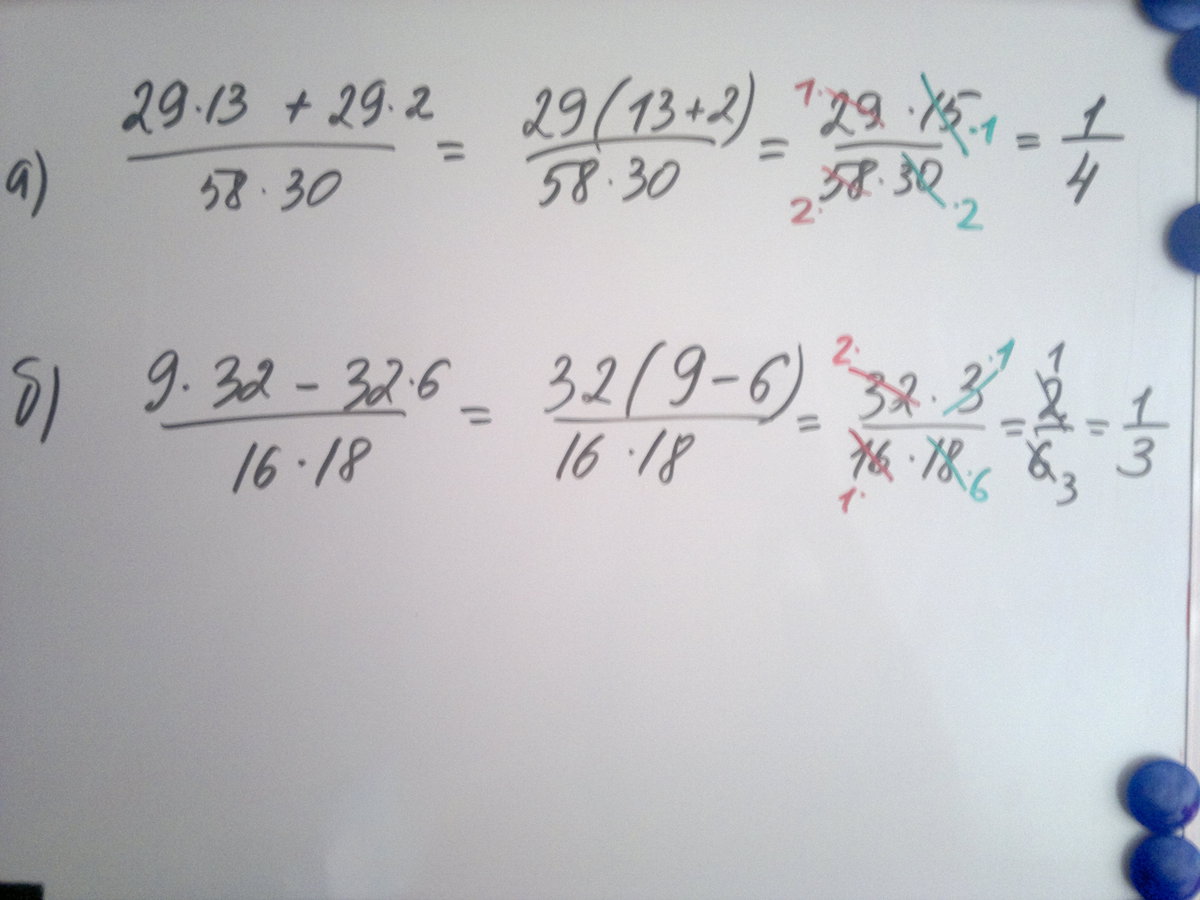 а) (29·13 + 29·2)/(58·30) = (29(13+2))/(58·30) = (29·15)/(58·30) 1· ·1 2· ·2 = 1/4
б) (9·32 - 32·6)/(16·18) = (32(9-6))/(16·18) = (32·3)/(16·18) 2· ·1 1· ·6 = 2/6 1 3 = 1/3